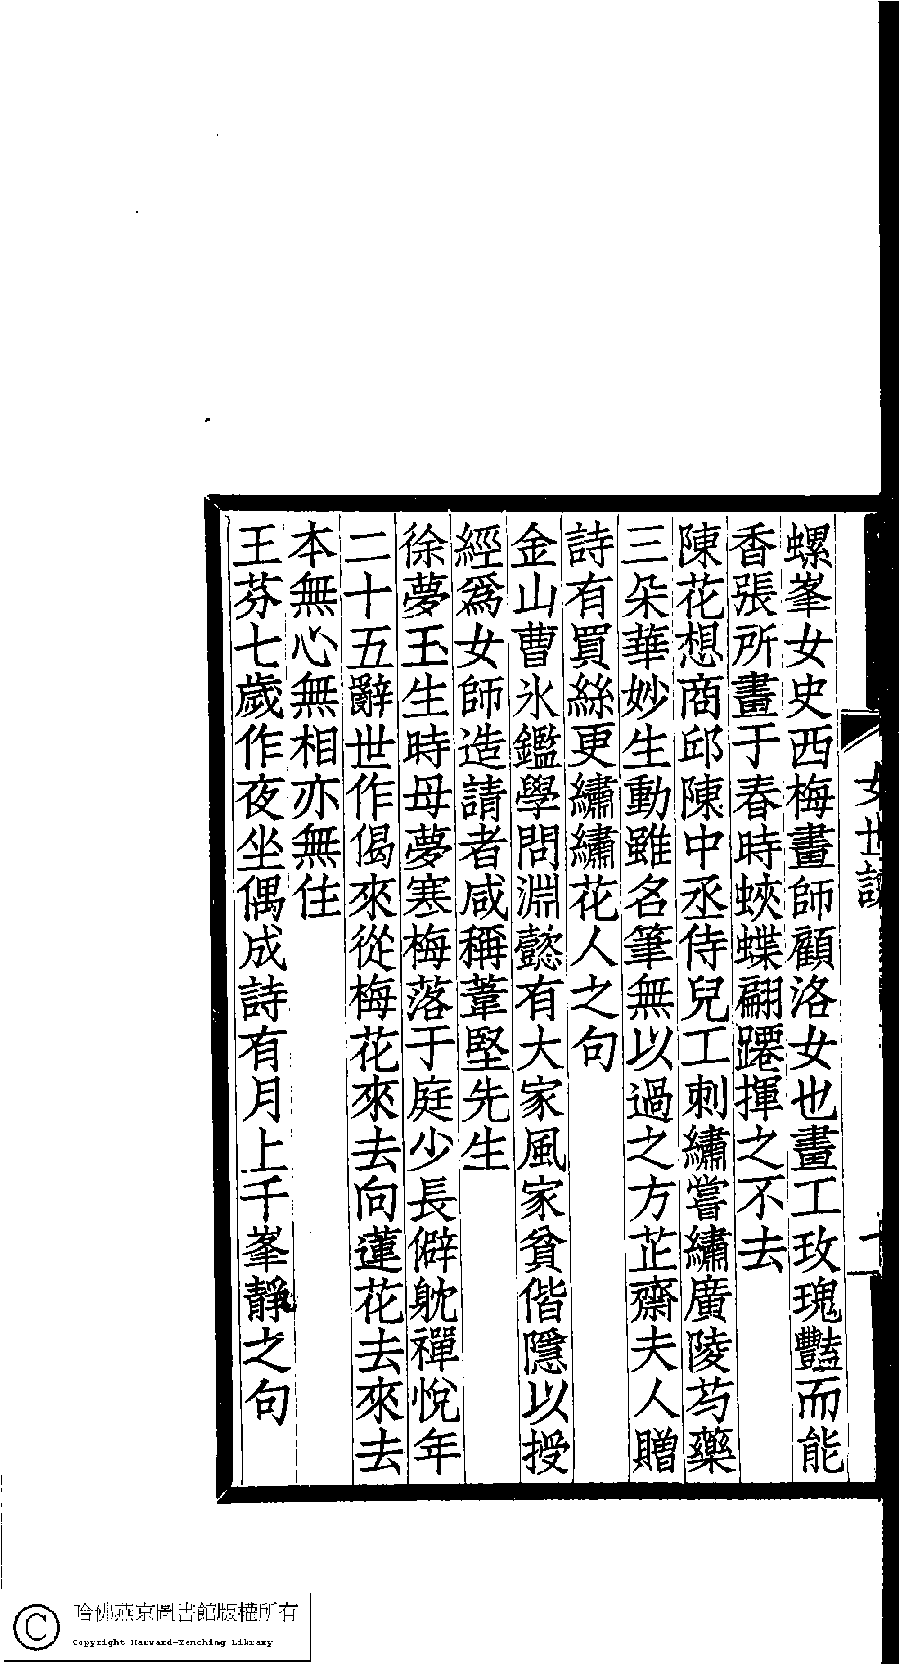 女世說
螺峯女史西梅畫師顧洛女也畫工玫瑰豔而能
香張所畫于春時蛺蝶翩躚揮之不去
陳花想商邱陳中丞侍兒工刺繡嘗繡廣陵芍藥
三朵華妙生動雖名筆無以過之方芷齋夫人贈
詩有買絲更繡繡花人之句
金山曹氷鑑學問淵懿有大家風家貧偕隱以授
經爲女師造請者咸稱葦堅先生
徐夢玉生時母夢寒梅落于庭少長僻躭禪悅年
二十五辭世作偈來從梅花來去向蓮花去來去
本無心無相亦無住
王芬七歲作夜坐偶成詩有月上千峯靜之句
哈佛燕京圖書館版權所有
Copyright Harvard-Yenching Library